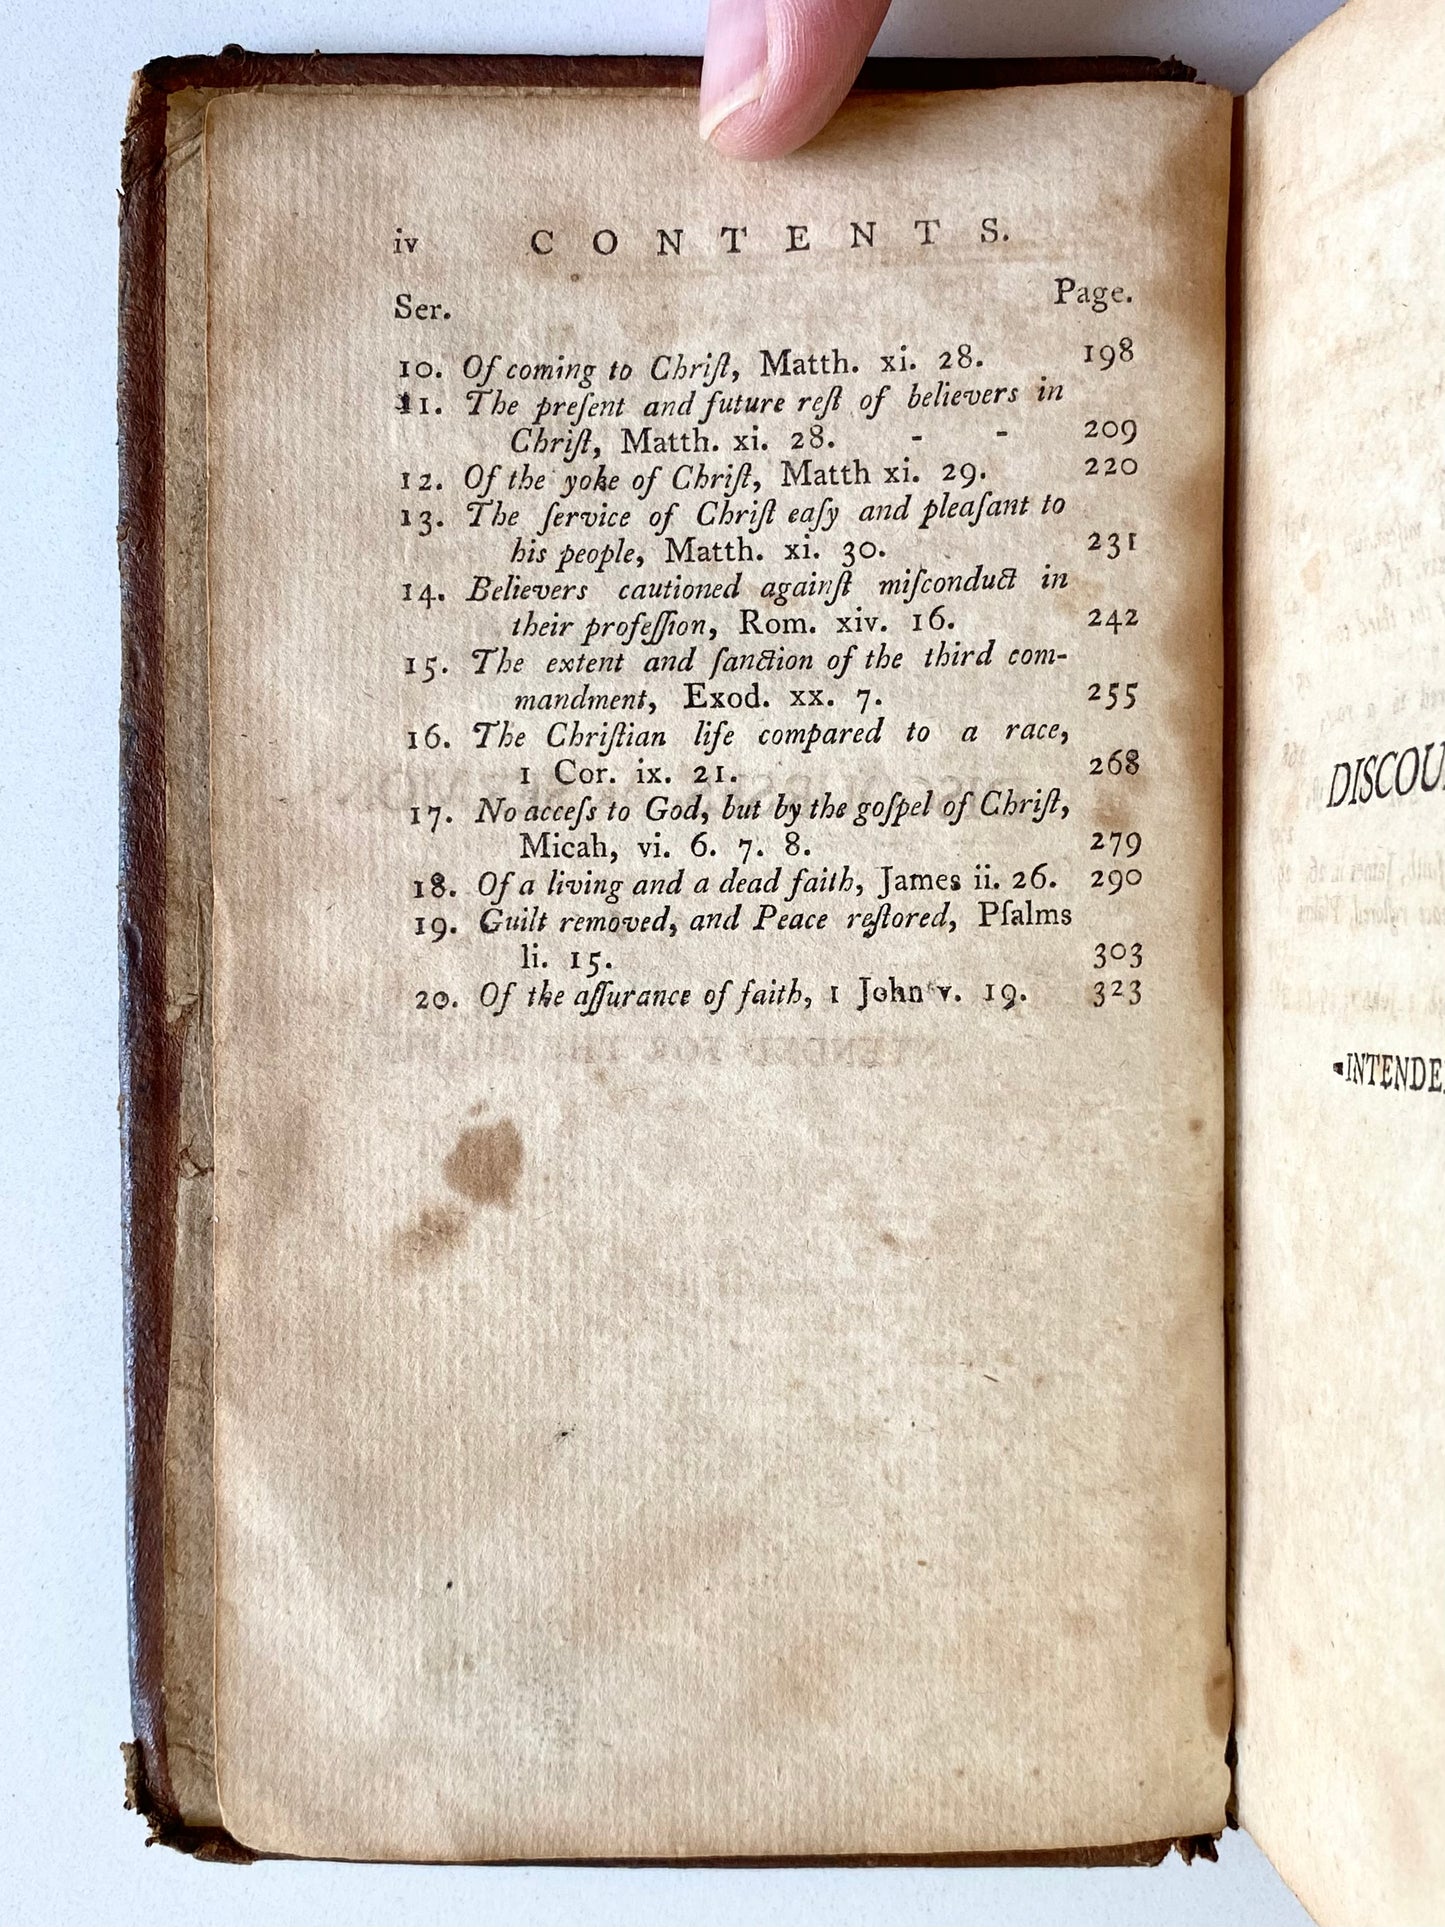 iv CONTENTS.
Ser. Page.
10. Of coming to Chriſt, Matth. xi. 28. 198
11. The preſent and future reſt of believers in
Chriſt, Matth. xi. 28. - - 209
12. Of the yoke of Chriſt, Matth xi. 29. 220
13. The ſervice of Chriſt eaſy and pleaſant to
his people, Matth. xi. 30. 231
14. Believers cautioned againſt miſconduct in
their profeſſion, Rom. xiv. 16. 242
15. The extent and ſanction of the third com-
mandment, Exod. xx. 7. 255
16. The Chriſtian life compared to a race,
1 Cor. ix. 21. 268
17. No acceſs to God, but by the goſpel of Chriſt,
Micah, vi. 6. 7. 8. 279
18. Of a living and a dead faith, James ii. 26. 290
19. Guilt removed, and Peace reſtored, Pſalms
li. 15. 303
20. Of the aſſurance of faith, 1 John v. 19. 323
DISCOU
INTENDE